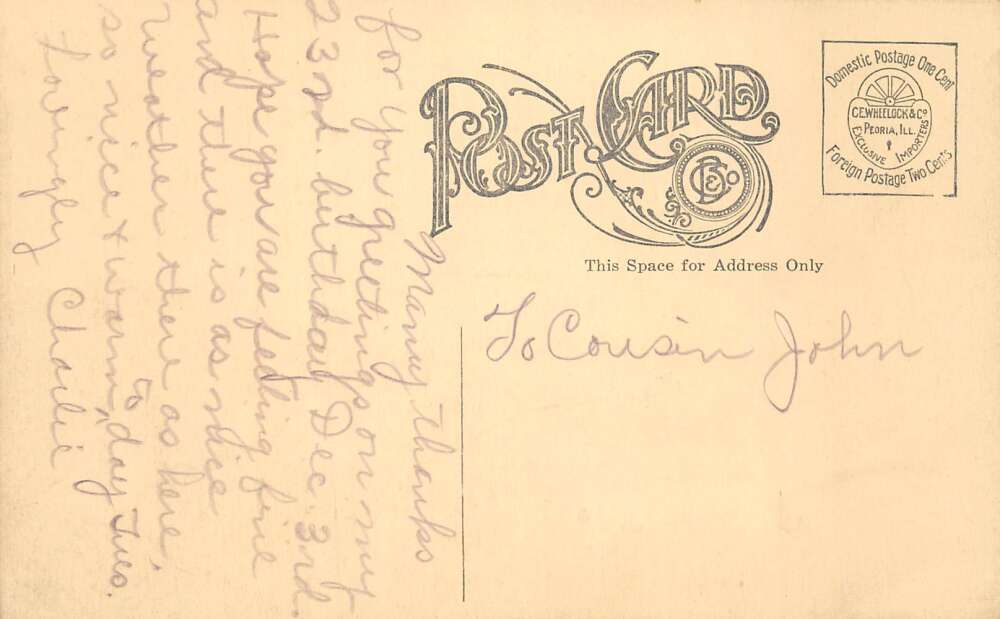 Many thanks
for you greetings on my
23rd. birthday Dec. 3rd.
Hope you are feeling fine
and there is as nice
weather there as here,
so nice & warm, to day Tues.
Lovingly Charlie
POST CARD
CEWHEELOCK&Cº
PEORIA, ILL.
EXCLUSIVE IMPORTERS
Domestic Postage One Cent
Foreign Postage Two Cents
This Space for Address Only
To Cousin John